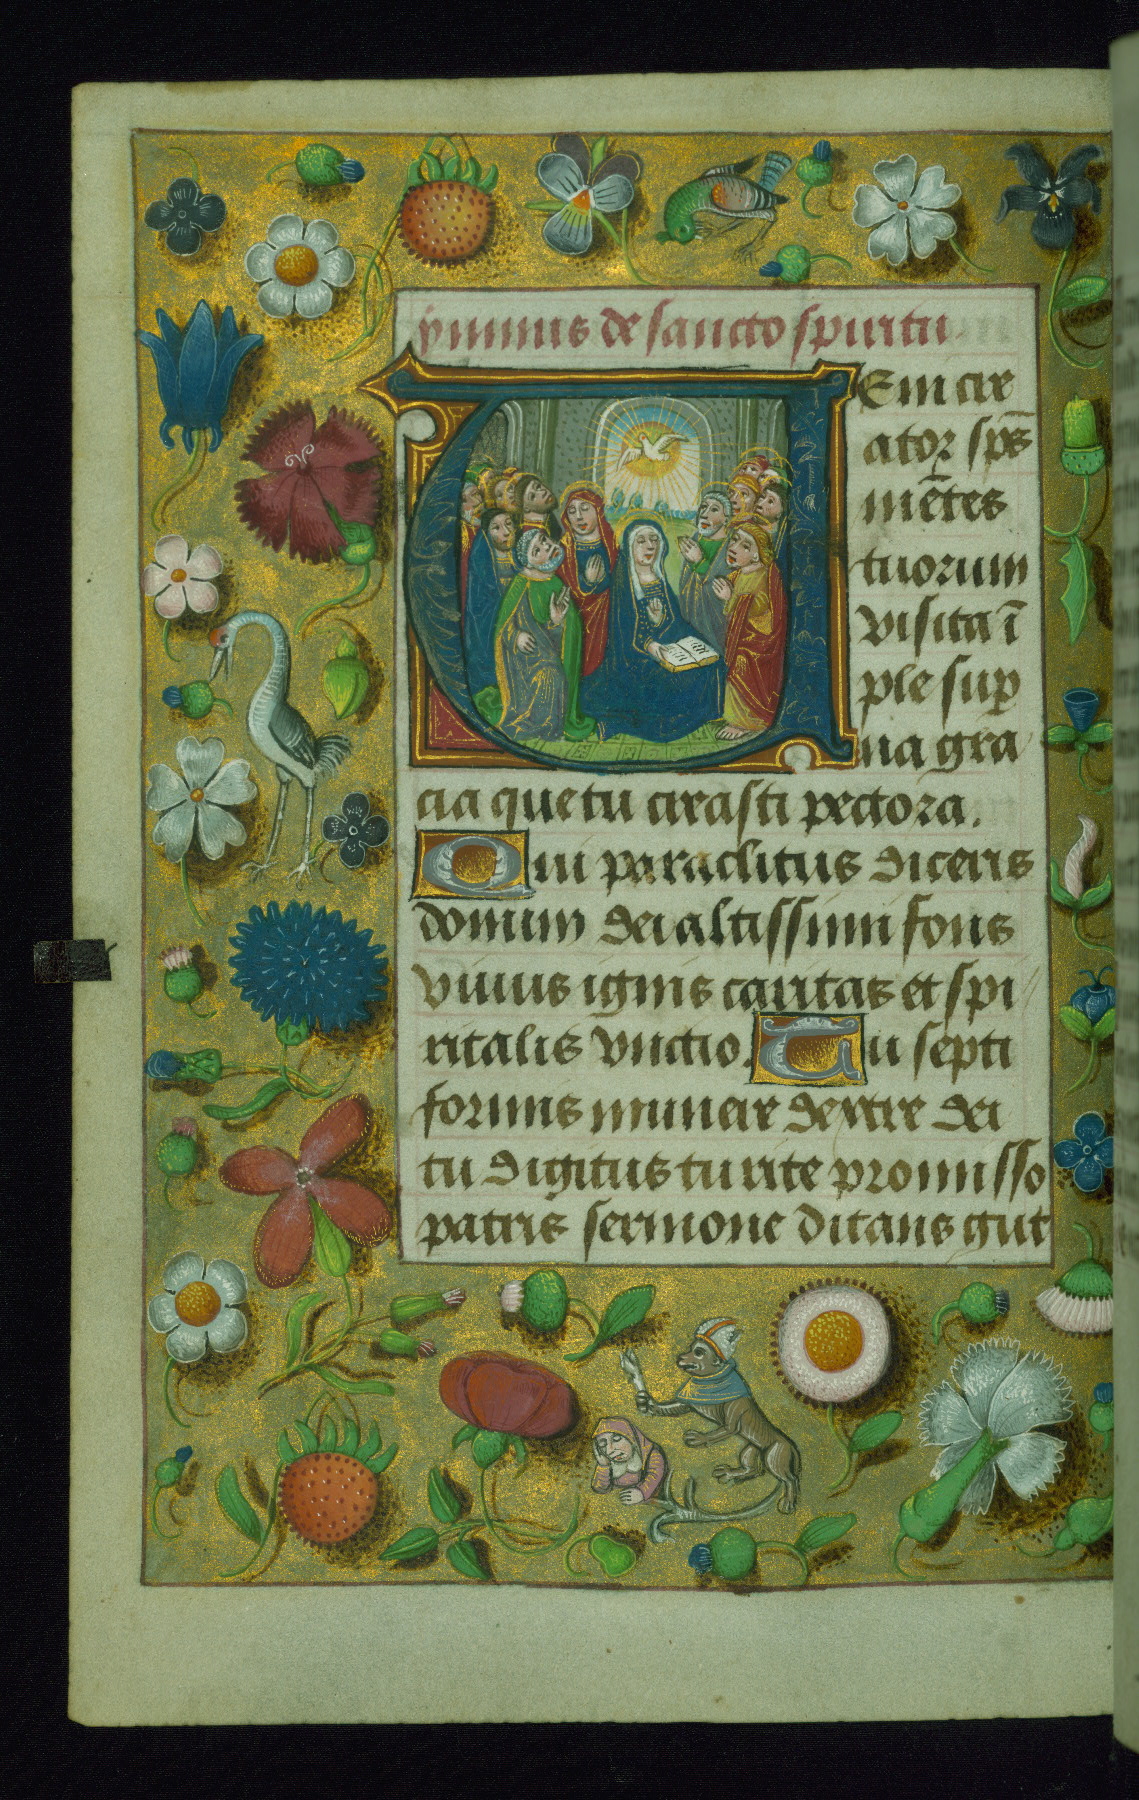 ympnus de sancto spiritu
VEni cre
ator sp̄s
mētes
tuorum
visita ī
ple sup̱
na gra
cia que tu creasti pectora.
Qui paraclitus diceris
donum dei altissimi fons
viuus ignis caritas et spi
ritalis vnctio. Tu septi
formis munere dextre dei
tu digitus tu rite promisso
patris sermone ditans gut